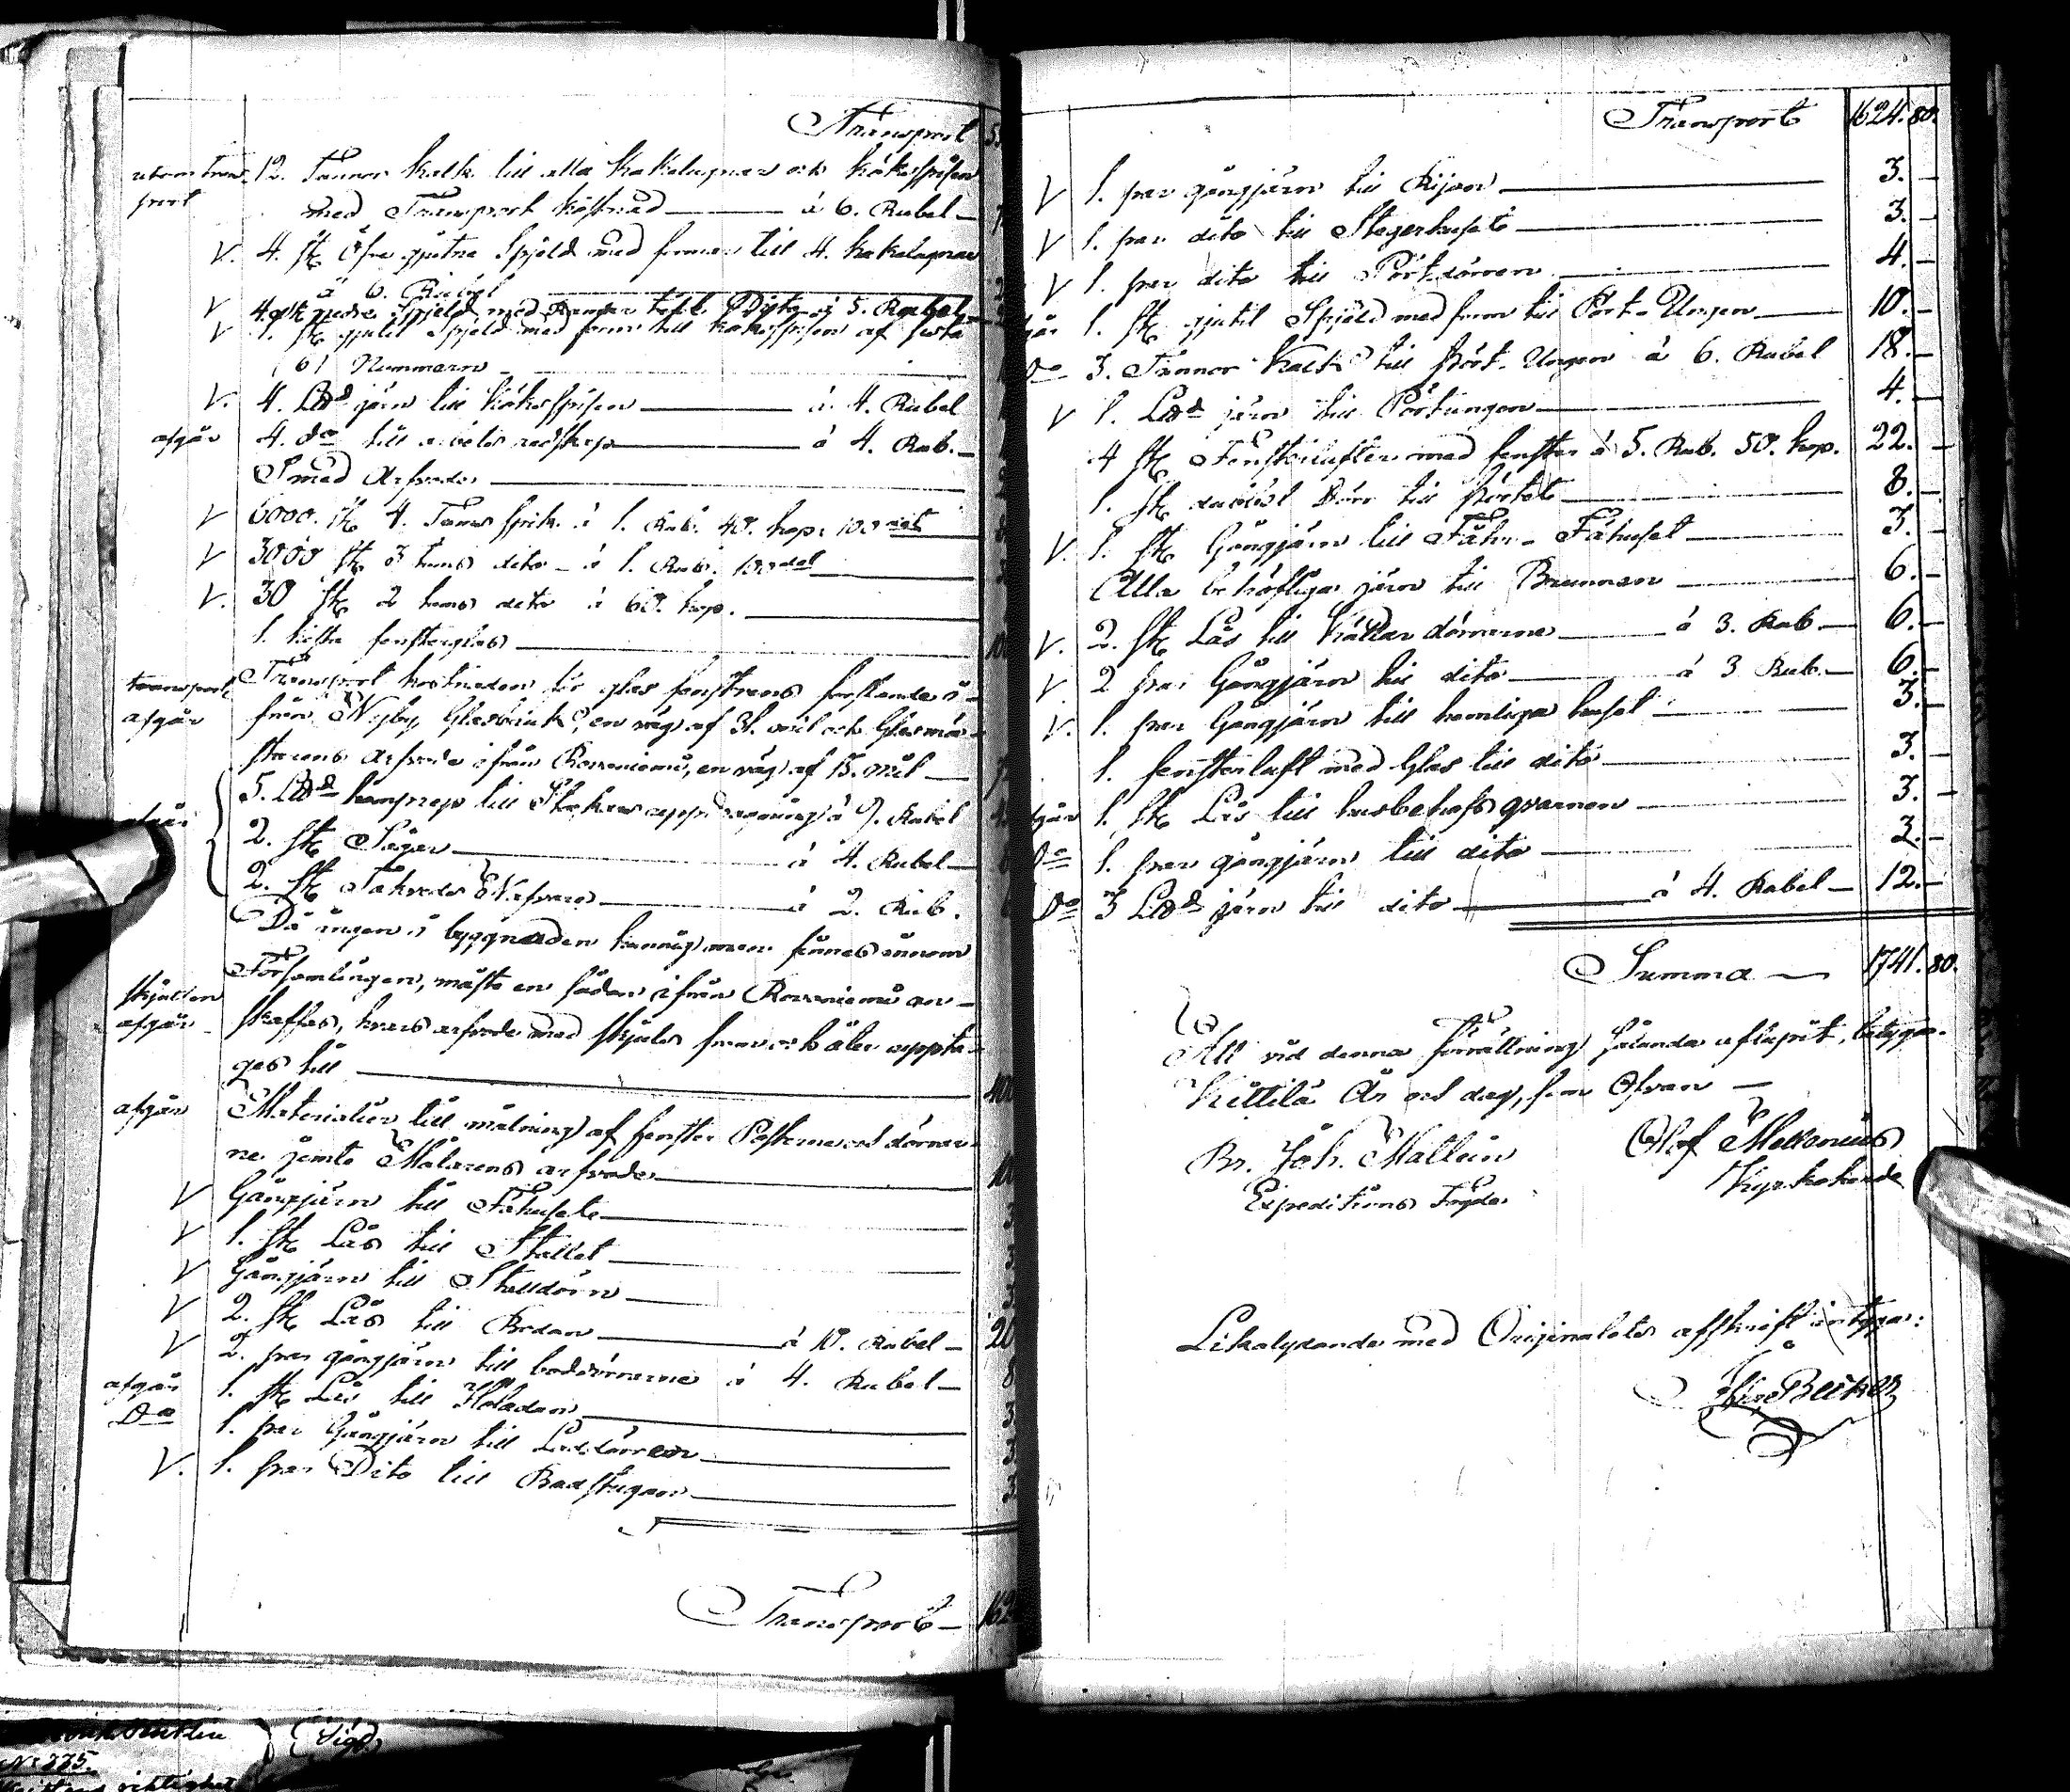 Transport
utom trans- 12. Tannor kalk till alla kakelugnar och kökspisen
port med Transport kostnad — à 6. Rubel —
V. 4. st. öfre gjutne Spjeld med formar till 4. kakelugnar
à 6. Rubel
V 4. st. nedre Spjeld med Ramar till Dito à 5. Rubel
V 1. st. gjutit Spjeld med form till kökspisen af sista
(6) Nummern —
V. 4. LW järn till kökspisen — à 4. Rubel
afgår 4. do till arbets redskap — à 4. Rub. —
Smed Arfvode —
V 6000. st. 4. Tums spik à 1. Rub. 40. kop. 100det
V 3000 st. 3 tums dito — à 1. Rub. 100det
V. 30 st. 2 tums dito à 60. kop. —
1. kista fensterglas —
transport Transport kostnaden för glas fenstrens forslande i-
afgår från Nyby Glasbruk, en väg af 31. mil och Glasmä-
starens arfvode ifrån Rovaniemi, en väg af 15. mil —
5. LW hamprep till Stockars uppdragning à 9. Rubel
afgår 2. st. Sågar — à 4. Rubel —
2. st. Nafvare — à 2. Rub.
Då ingen i byggnaden kunnig man finnes innom
Församlingen, måste en sådan ifrån Rovaniemi an-
skjutsen
afgår skaffas, hvars arfvode med skjuts fram och åter uppta-
ges till — 400
afgår Materialier till målning af fenster Posterne och dörrar-
ne jemte Målarens arfvode — 100
V Gångjärn till Fähuset — 3
V 1. st. Lås till Stallet — 3
V Gångjärn till Stalldörn — 3
V 2. st. Lås till Bodan — à 10. Rubel — 20
V 2. par gångjärn till boddörrarne à 4. Rubel — 8
afgår 1. st. Lås till Höladan — 3
Do 1. par Gångjärn till Laddörren — 3
V. 1. par Dito till Badstugan — 3
Transport — 162
Transport 1624. 80.
V 1. par gångjärn till Rijan — 3. —
V 1. par dito till Stegerhuset — 3. —
V 1. par dito till Pörtdörren — 4. —
1. st. gjutit Spjeld med form till Pört-Ungen — 10. —
Do 3. Tannor Kalk till Pört-Ungen à 6. Rubel 18. —
V 1. LW järn till Pörtungen — 4. —
4 st. Fensterlufter med fenster à 5. Rub. 50. kop. 22. —
1. st. Dörr till Pörtet — 8. —
V. 1. st. Gångjärn till Fähuset — 3. —
Alla behöfliga järn till Brunnan — 6. —
V. 2. st. Lås till källar dörrarne — à 3. Rub — 6. —
V 2 par Gångjärn till dito — à 3 Rub. — 6. —
V. 1. par Gångjärn till hemliga huset — 3. —
1. fensterluft med Glas till dito — 3. —
afgår 1. st. Lås till husbehofs qvarnen — 3. —
Do 1. par gångjärn till dito — 3. —
Do 3 LW järn till dito — à 4. Rubel — 12. —
Summa — 1741. 80.
All vid denna förrättning sålunda aflupit, betyga.
Kittilä År och dag, som Ofvan —
Br. Joh. Mallein Olof Mellenius
Expeditions Fogde Kyrkoherde
Likalydande med Originalets afskrift intyga: